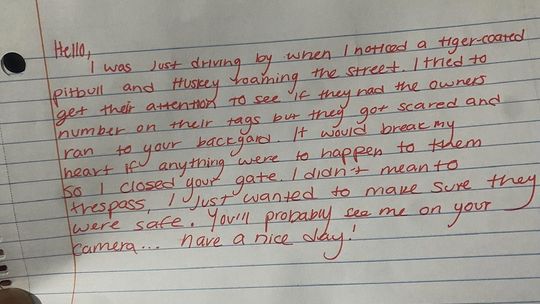 Hello,
I was just driving by when I noticed a tiger-coated
pitbull and Huskey roaming the street. I tried to
get their attention to see if they had the owners
number on their tags but they got scared and
ran to your backyard. It would break my
heart if anything were to happen to them
so I closed your gate. I didn't mean to
trespass, I just wanted to make sure they
were safe. You'll probably see me on your
camera... have a nice day!